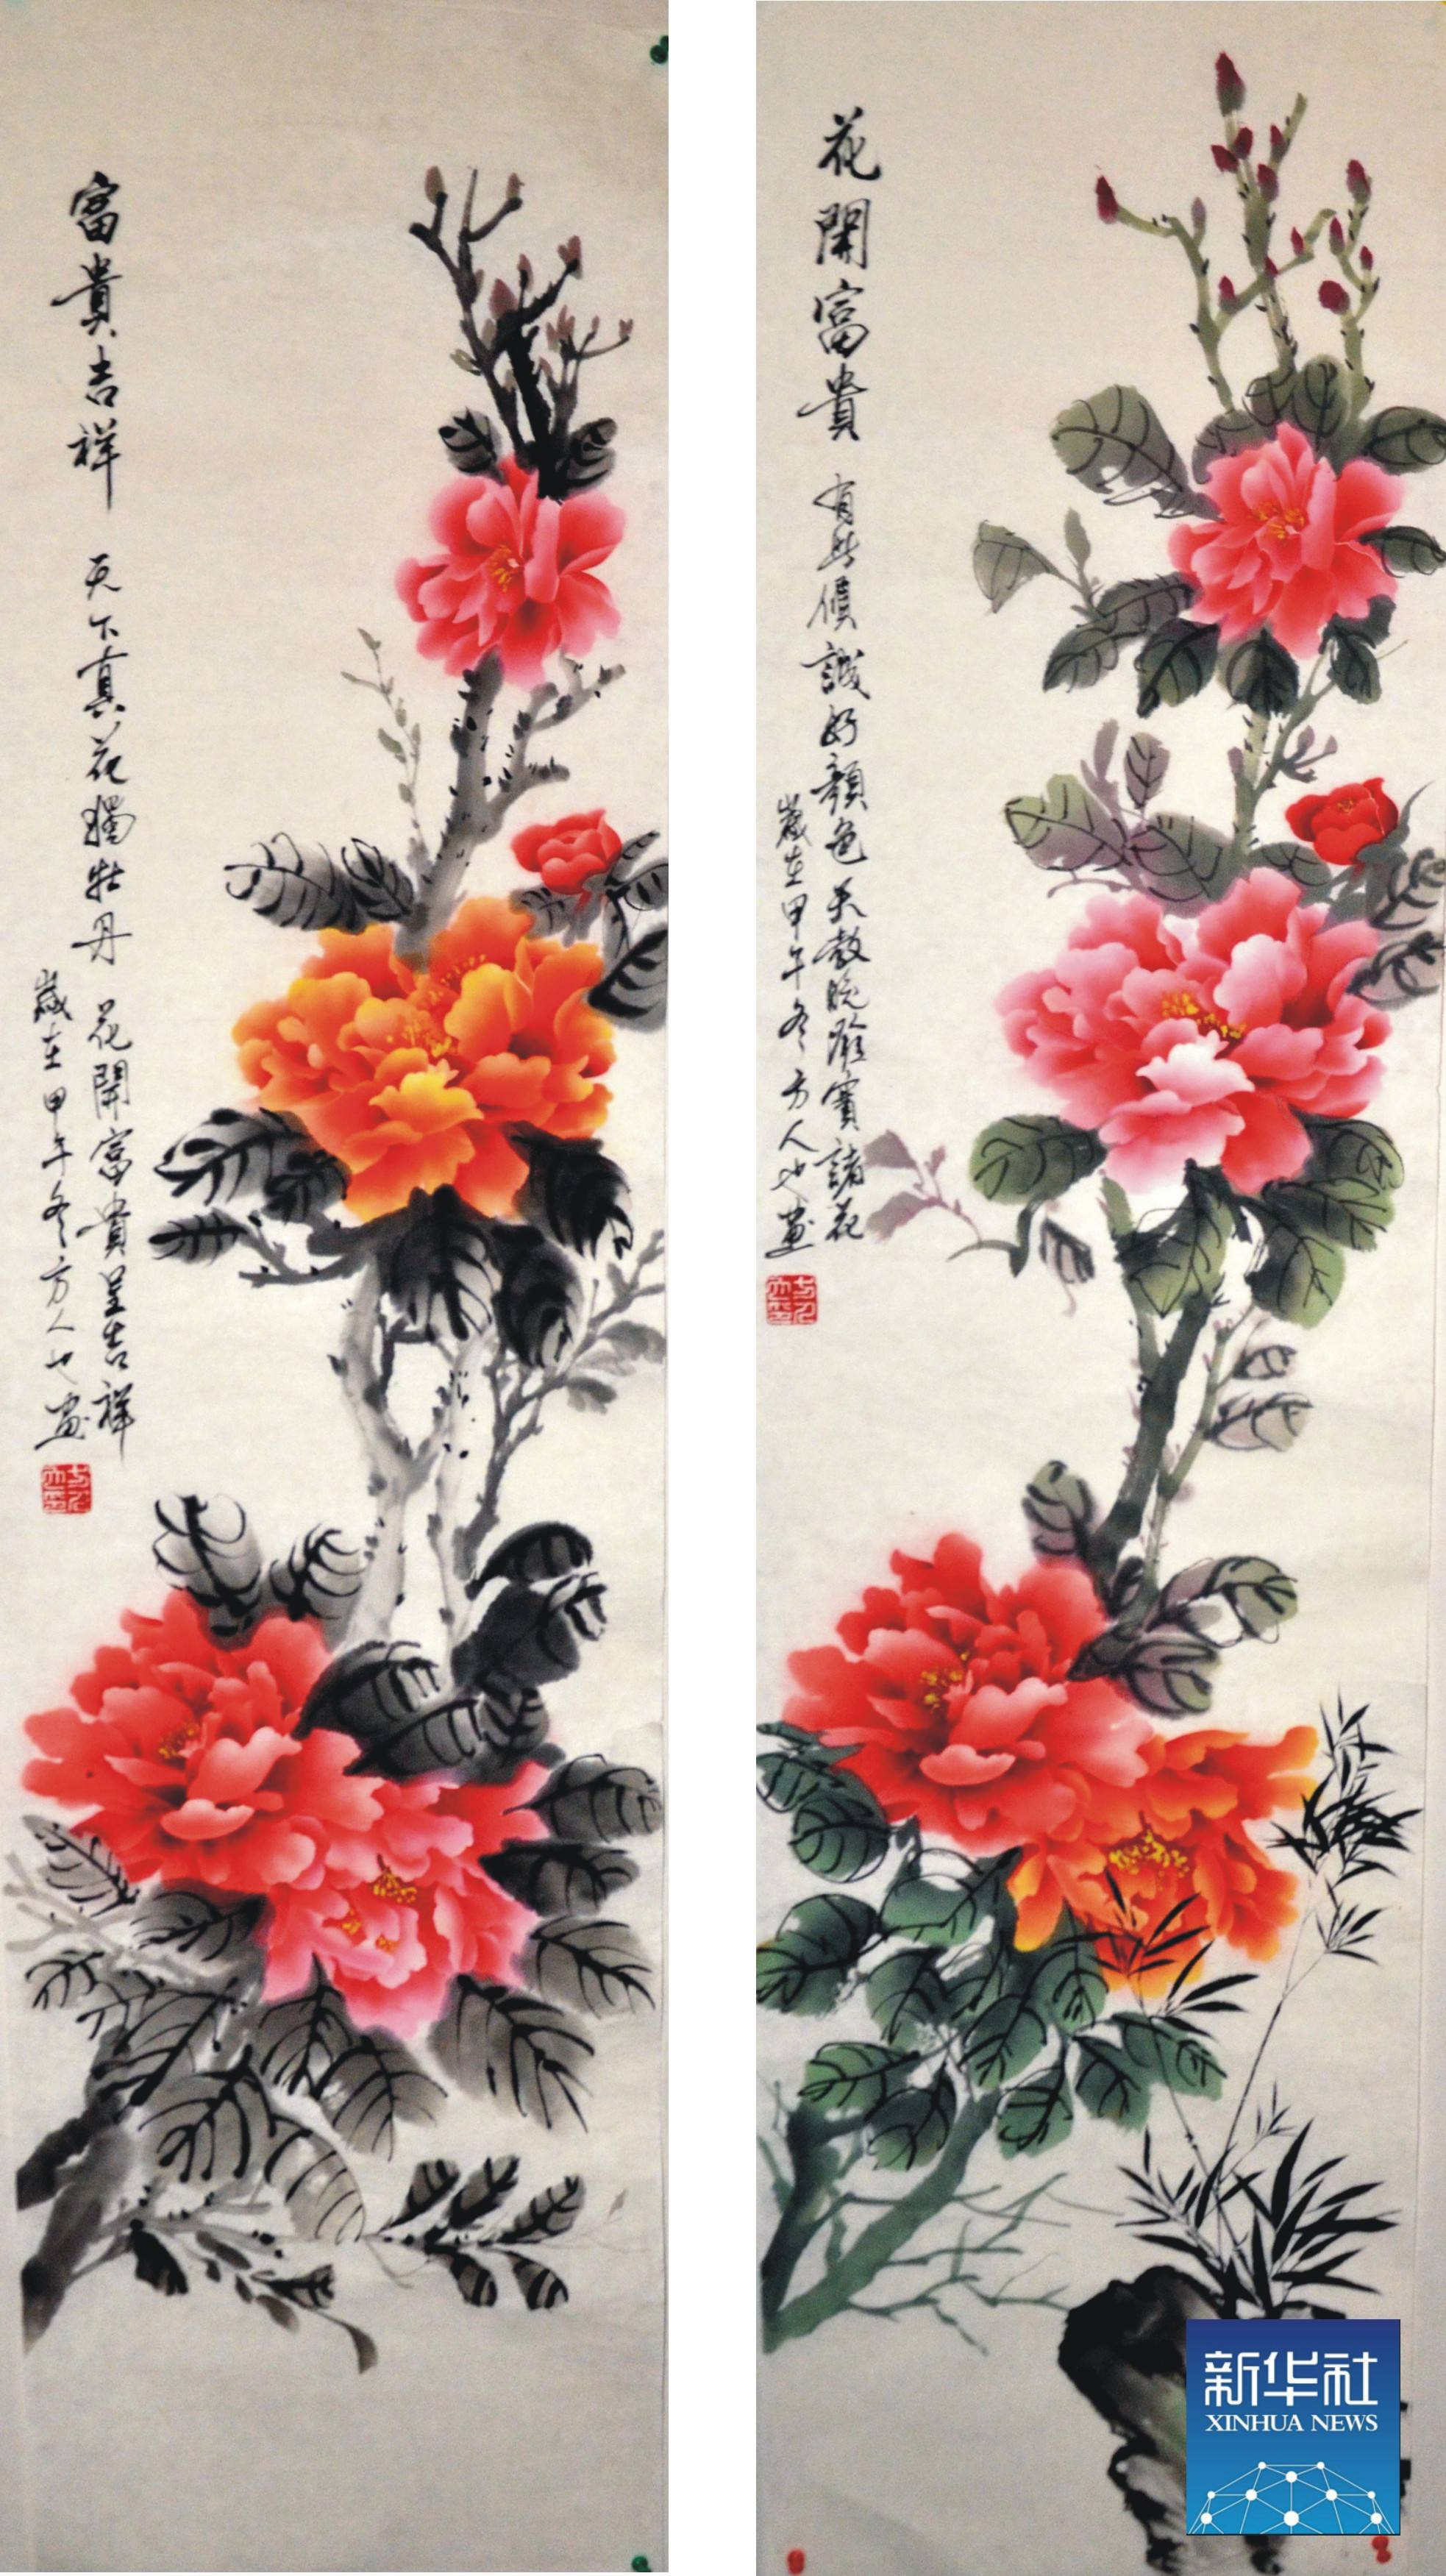 富貴吉祥 天下真花獨牡丹 花開富貴呈吉祥
歲在甲午冬方人也畫
花開富貴 有此傾誠好顏色天教晚發賽諸花
歲在甲午冬方人也畫
新华社
XINHUA NEWS